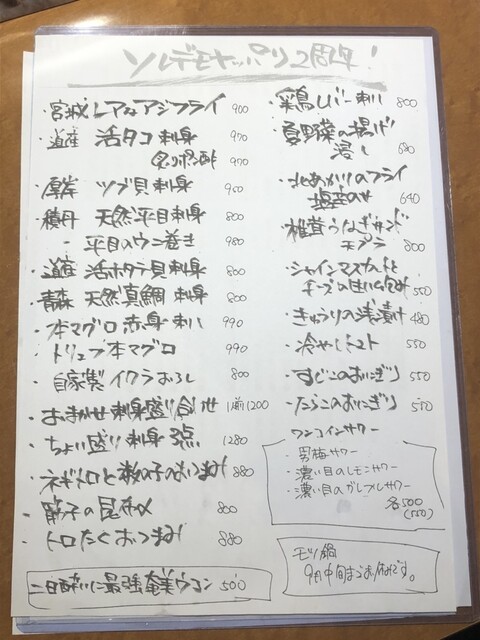 ソレデモヤッパリ2周年!
・宮城 レアなアジフライ 900
・道産 活タコ刺身 970
炙りポン酢 970
・厚岸 ツブ貝刺身 950
・積丹 天然平目刺身 800
・平目のウニ巻き 980
・道産 活ホタテ貝刺身 800
・青森 天然真鯛刺身 800
・本マグロ赤身刺し 990
・トリュフ本マグロ 990
・自家製イクラおろし 800
・おまかせ刺身盛り合せ 1人前1200
・ちょい盛り刺身3点 1280
・ネギトロと数の子のおつまみ 880
・数の子の昆布〆 800
・トロたくおつまみ 880
二日酔いに最強奄美ウコン 500
・彩鶏レバー刺し 800
・夏野菜の揚げ
浸し 680
・北あかりのフライ
塩辛のせ 640
・椎茸うなぎサンド
天プラ 800
・シャインマスカットと
チーズの生ハム包み 550
・きゅうりの浅漬け 480
・冷やしトマト 550
・すじこのおにぎり 550
・たらこのおにぎり 550
ワンコインサワー
・男梅サワー
・濃い目のレモンサワー
・濃い目のグレフルサワー
各500
(550)
モツ鍋
9月中旬までお休みです。